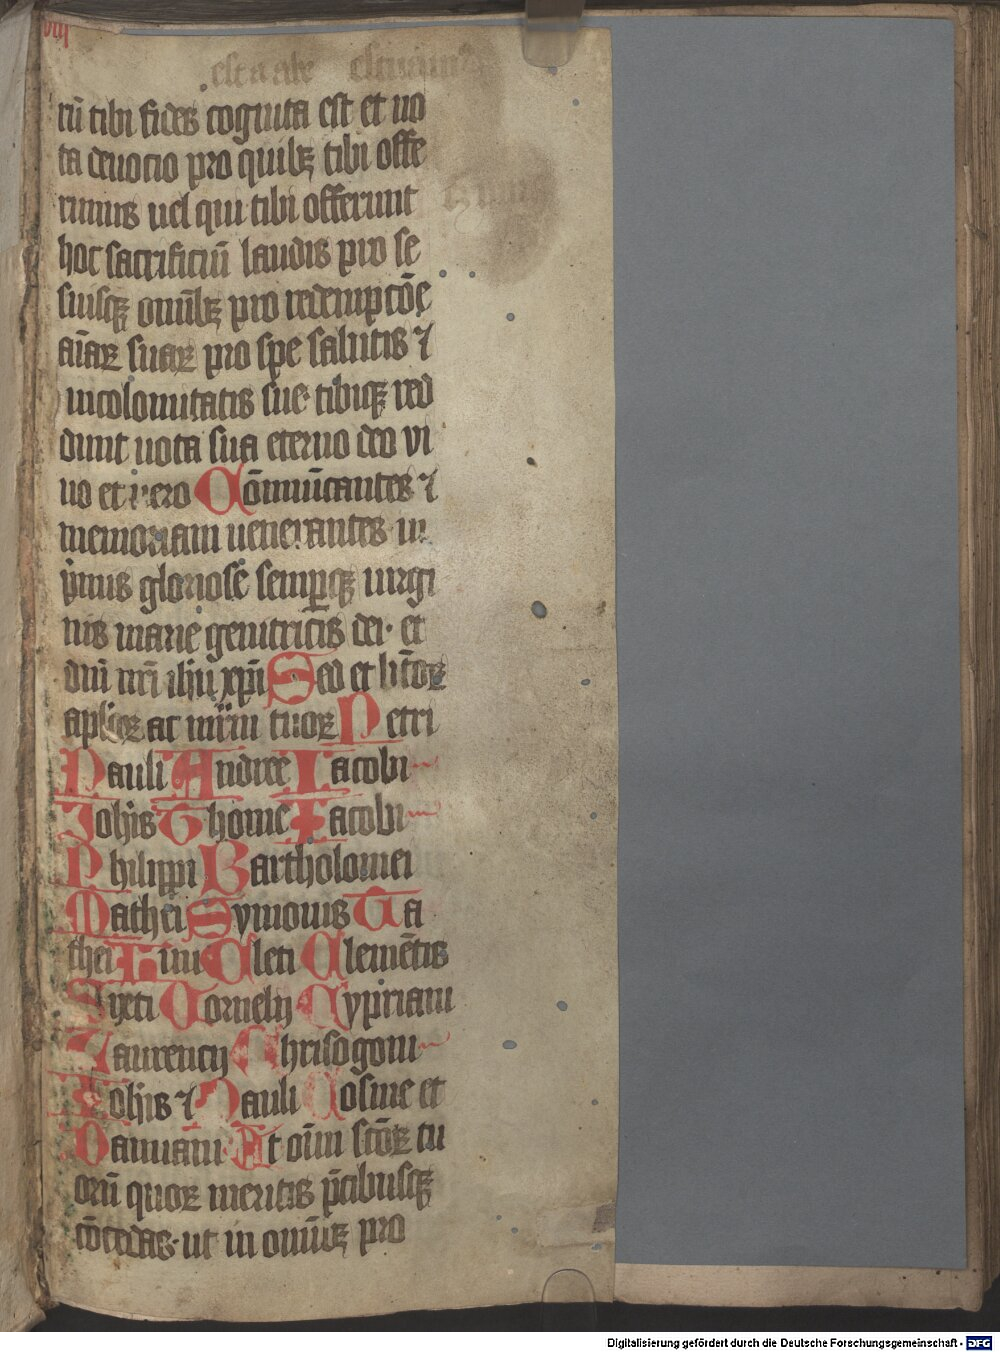 viii
rū tibi fides cognita est et no
ta deuocio pro quibꝫ tibi offe
rimus uel qui tibi offerunt
hoc sacrificiū laudis pro se
suisqꝫ omībꝫ pro redempcōe
aīaꝝ suaꝝ pro spe salutis ⁊
incolomitatis sue· tibiqꝫ red
dunt uota sua eterno deo vi
uo et vero Cōmunicantes ⁊
memoriam uenerantes· in
pͥmis gloriose semꝑqꝫ uirgi
nis marie genitricis dei· et
dn̄i nr̄i ih̄u xpī Sed et btōꝝ
apl̄oꝝ ac mr̄m tuoꝝ Petri
Pauli Andree Iacobi
Johīs Thome Iacobi
Philippi Bartholomei
Mathei Symonis Ta
thei Lini Cleti Clemētis
Syxti Cornelij Cypriani
Laurencij Chrisogoni
Iohīs ⁊ Pauli Cosme et
Damiani Et oīm sctōꝝ tu
orū quoꝝ meritis p̄cibusqꝫ
cōcedas· ut in omībꝫ pro
Digitalisierung gefördert durch die Deutsche Forschungsgemeinschaft - DFG